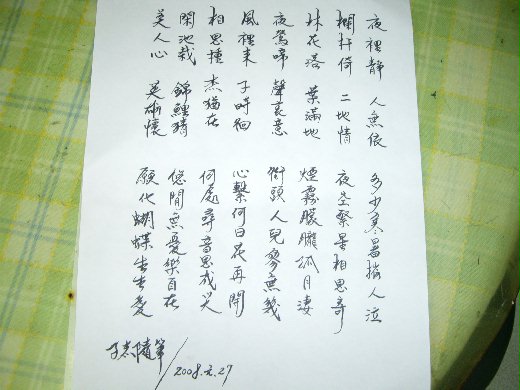 夜裡靜 人無依 多少寒暑惱人泣
欄杆倚 二地情 夜空繁星相思寄
林花落 葉滿地 煙霧朦朧孤月淒
夜鶯啼 聲哀意 街頭人兒寥無幾
風裡來 子時徊 心繫何日花再開
相思種 杰猶在 何處尋音思成災
閑池栽 錦鯉 悠閒無憂樂自在
美人心 英雄懷 願化蝴蝶生生愛
子杰隨筆/2008.2.27